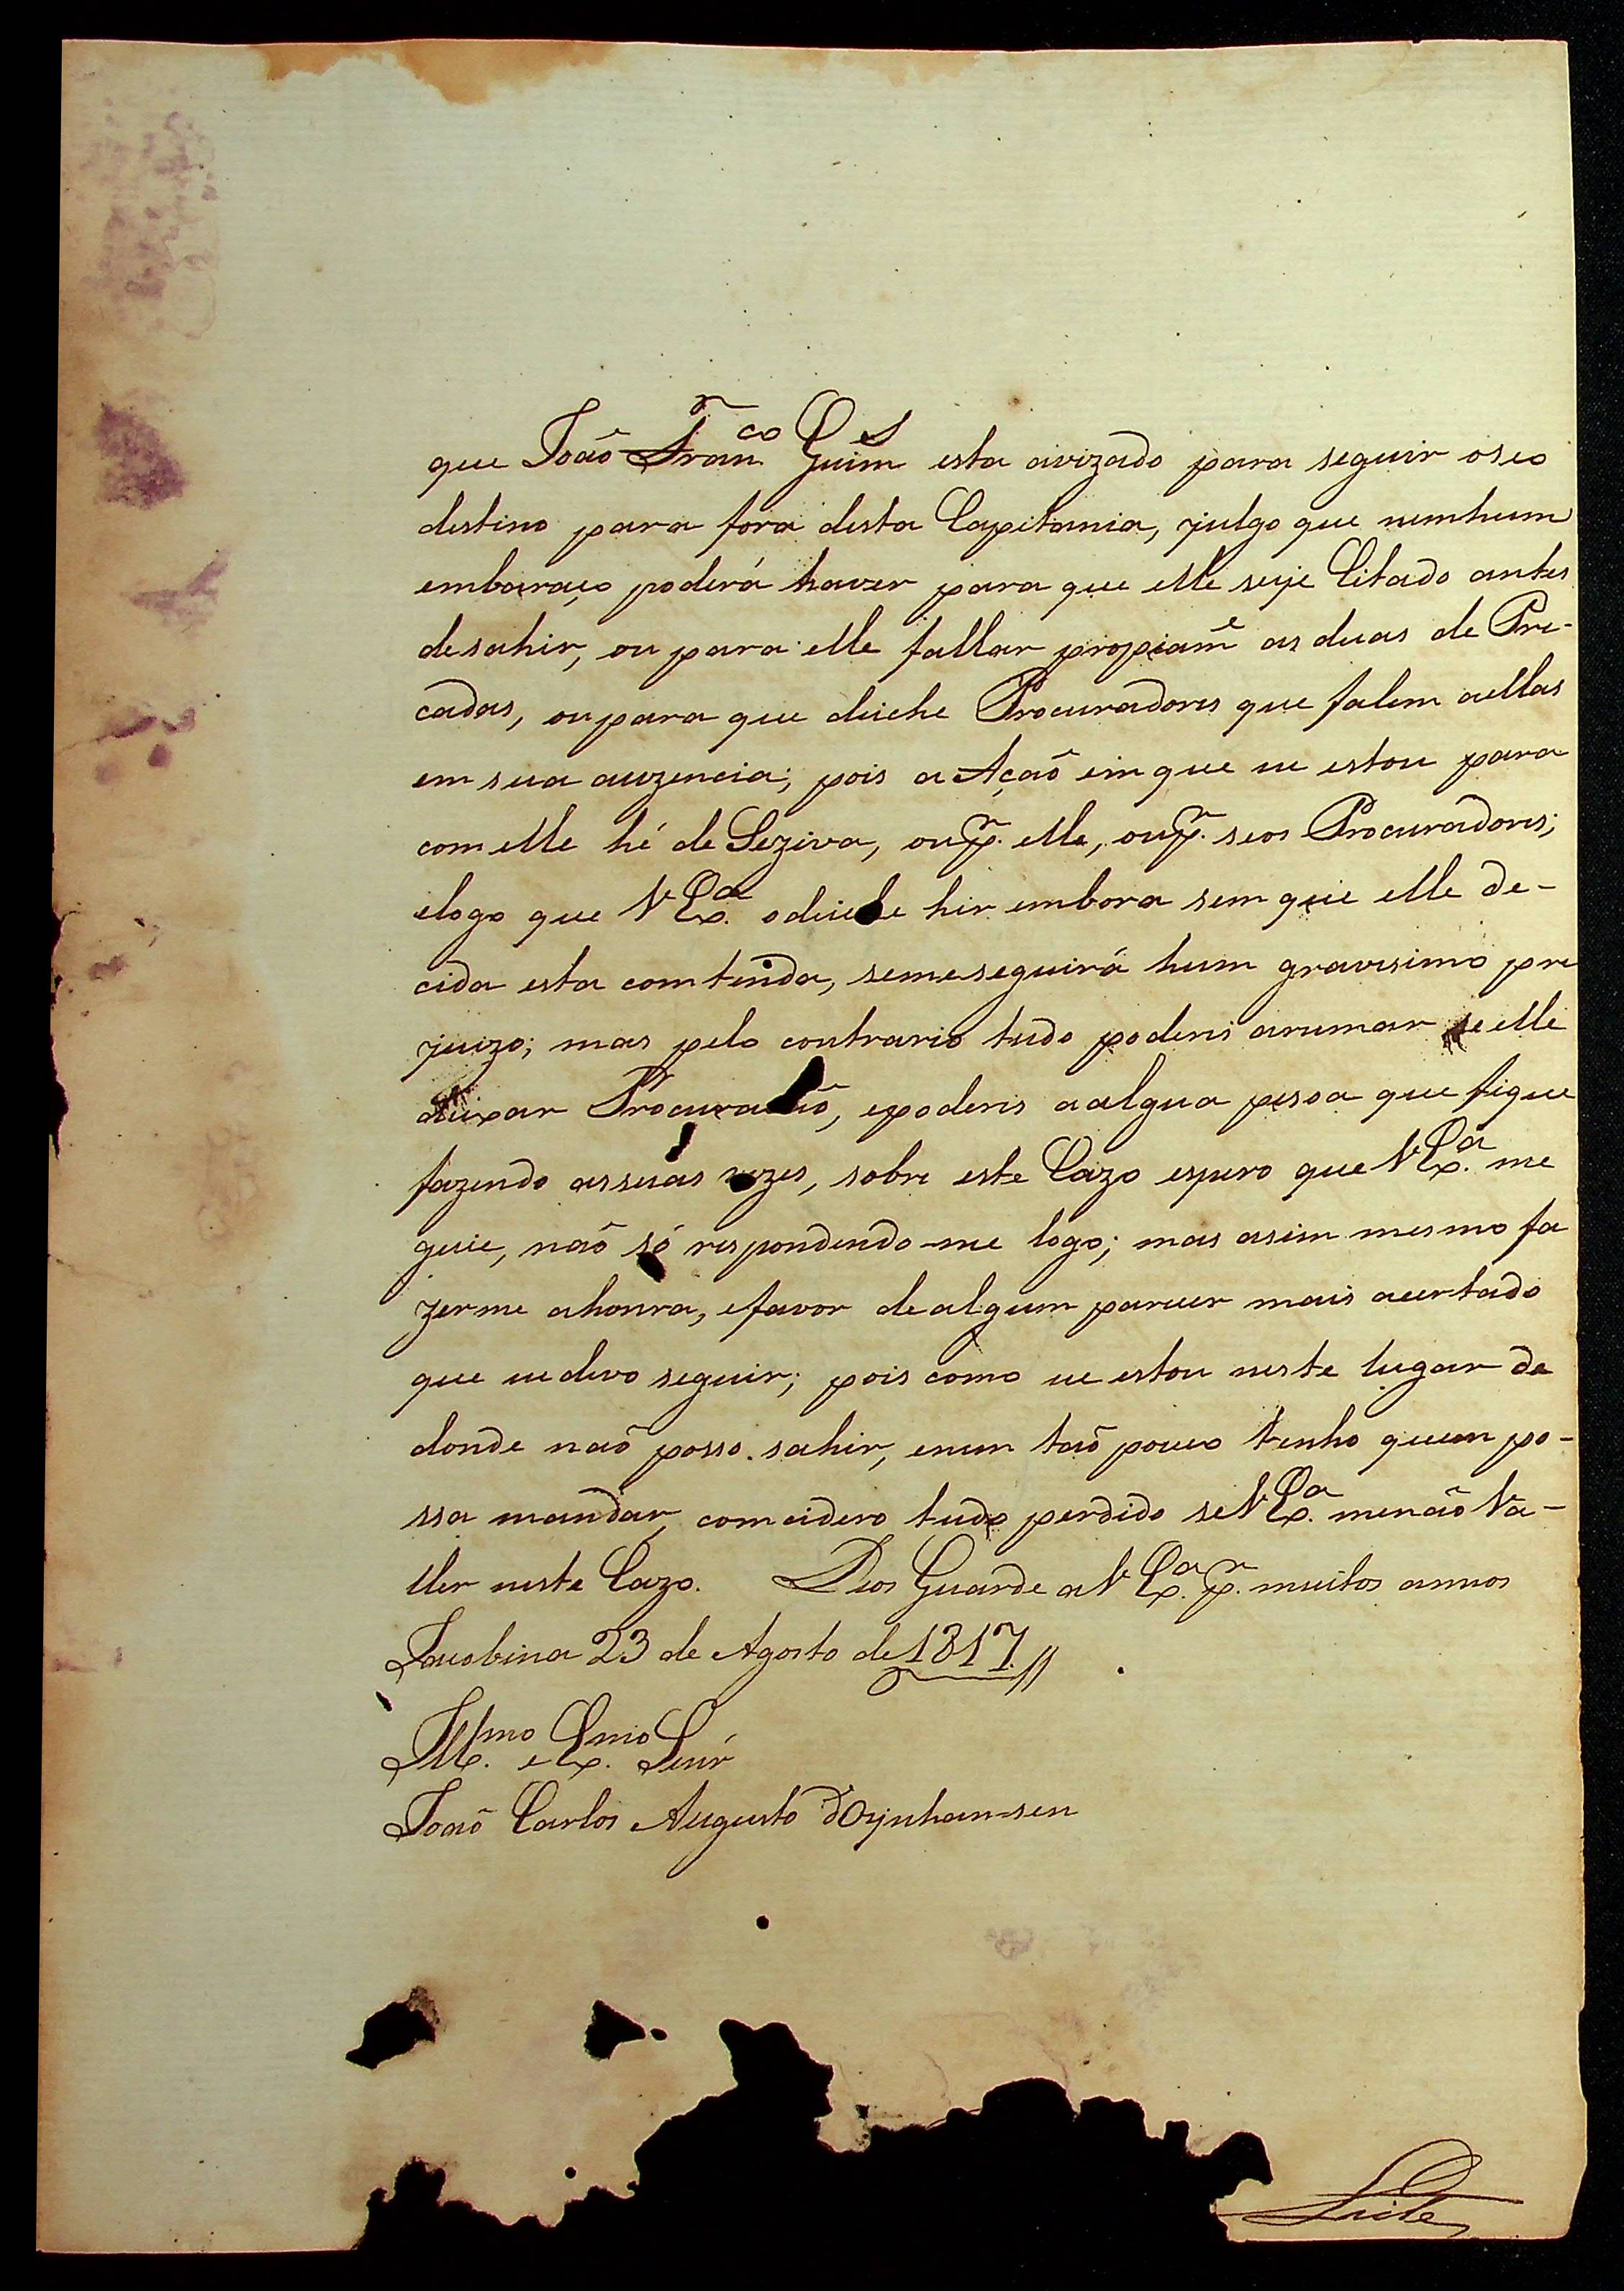 que João Fran.co Guim.es esta avizado para seguir oseo
destino para fora desta Capitania, julgo que nemhum
embaraço poderá haver para que elle seje Citado antes
desahir, ou para elle fallar propiam.e as duas de Pre-
cadas, ou para que deiche Procuradores que falem aellas
em sua auzencia; pois a Ação eim que eu estou para
com elle hé de Seziva, oup.r elle, oup.r seos Procuradores;
elogo que V Ex.a odeiche hir embora sem que elle de-
cida esta comtenda, semeseguirá hum gravisimo pre
juizo; mas pelo contrario tudo poderei arumar se elle
deixar Procuração, epoderes aalgua pesoa que fique
fazendo assuas vezes, sobre este Cazo espero que V Ex.a me
guie, não só respondendo-me logo; mas asim mesmo fa
zerme ahonra, efavor dealgum parecer mais acertado
que eudevo seguir; pois como eu estou neste lugar de
donde não posso sahir, enem tão pouco tenho quem po-
ssa mandar, comcidero tudo perdido seV Ex.a menão Va-
ller neste Cazo. Deos Guarde aV Ex.a p.r muitos annos
Jacobina 23 de Agosto de 1817//
Ill.mo e Ex.mo Senr
João Carlos Augusto d'Oÿnhau-sen
Leite